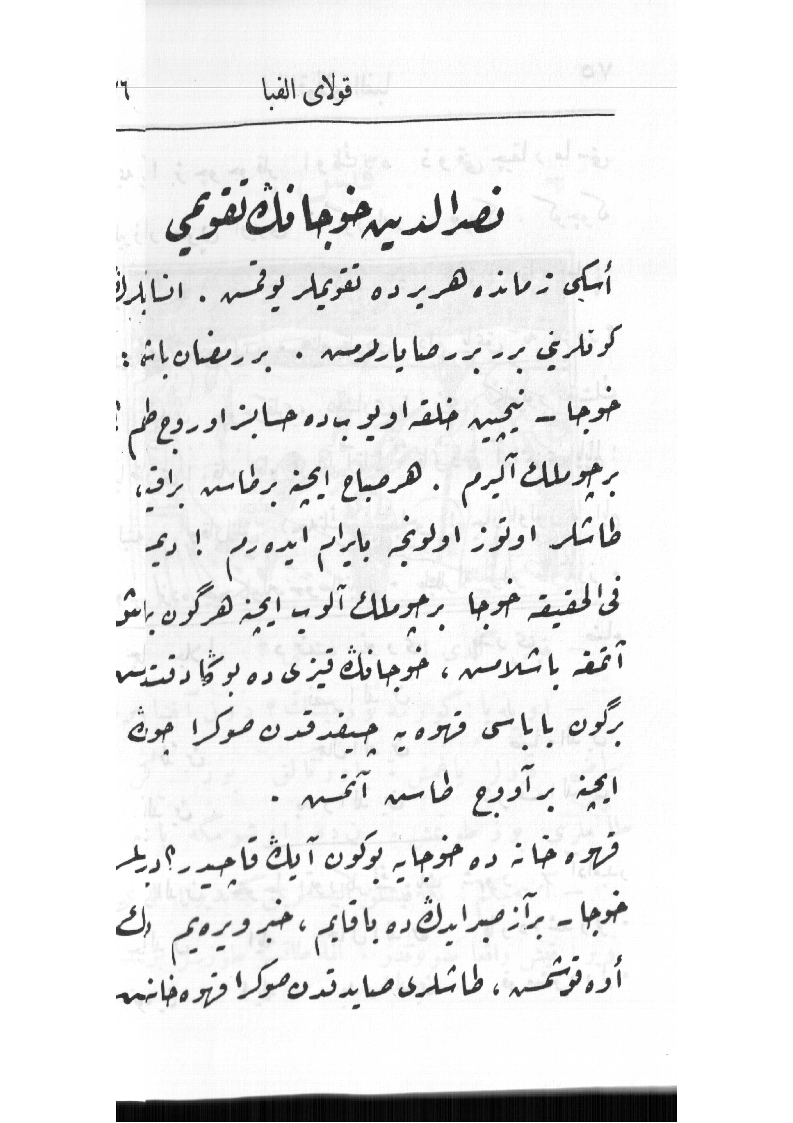 قولاى الفبا ٧٦
نصرالدين خوجانڭ تقويمى
أسكى زمانده هر يرده تقويملر يوقمش . انسانلر
كونلرينى برر برر صايارلرمش . بر رمضان باش :
خوجا ـ نيچين خلقه اويوب ده حسابسز اوروج طوتم
بر چوملك آليرم . هر صباح ايچنه بر طاش براقير،
طاشلر اوتوز اولونجه بايرام ايده رم ! ديمـ
فى الحقيقه خوجا بر چوملك آلوب ايچنه هرگون بر طاش
آتمغه باشلامش ، خوجانڭ قيزى ده بوڭا دقت ايتمش
برگون باباسى قهوه يه چيقدقدن صوكرا چوملڭ
ايچنه بر آووج طاش آتمش .
قهوه خانه ده خوجايه بوكون آيڭ قاچيدر؟ ديرلر
خوجا ـ بر آز صبر ايدڭ ده باقايم ، خبر ويره يم
أوه قوشمش ، طاشلرى صايدقدن صوكرا قهوه خانه